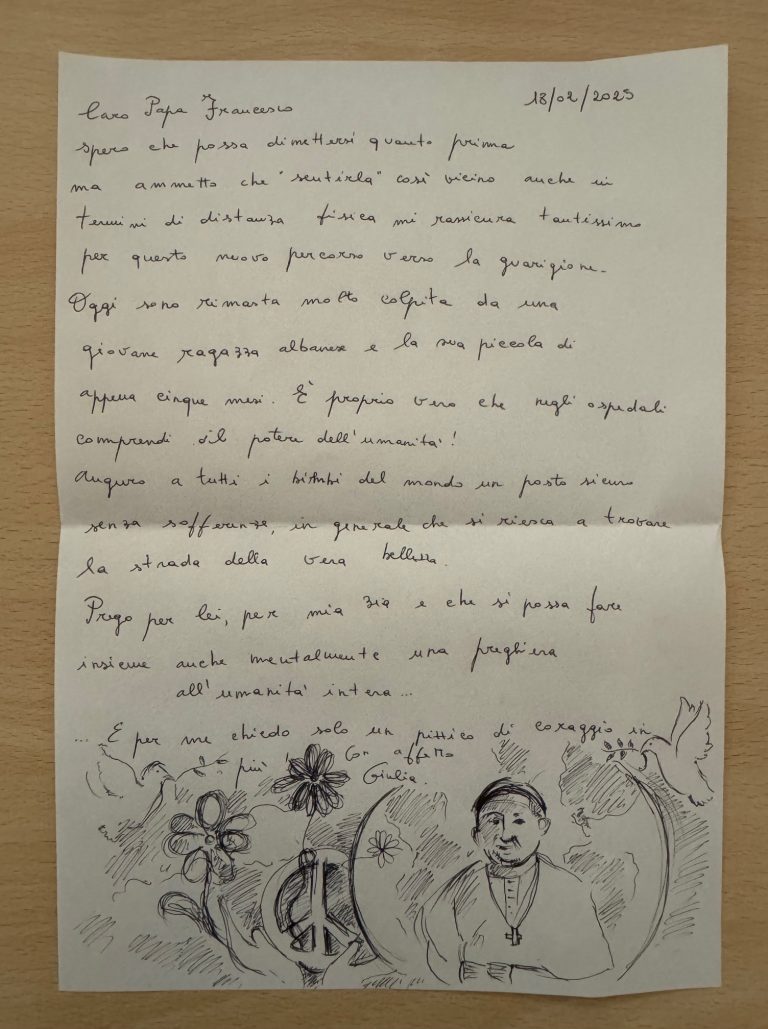 Caro Papa Francesco
18/02/2025
spero che possa dimettersi quanto prima
ma ammetto che "sentirla" così vicino anche in
termini di distanza fisica mi rassicura tantissimo
per questo nuovo percorso verso la guarigione.
Oggi sono rimasta molto colpita da una
giovane ragazza albanese e la sua piccola di
appena cinque mesi. È proprio vero che negli ospedali
comprendi il potere dell'umanità!
Auguro a tutti i bimbi del mondo un posto sicuro
senza sofferenze, in generale che si riesca a trovare
la strada della vera bellezza.
Prego per lei, per mia zia e che si possa fare
insieme anche mentalmente una preghiera
all'umanità intera...
... E per me chiedo solo un pizzico di coraggio in
più! Con affetto
Giulia.